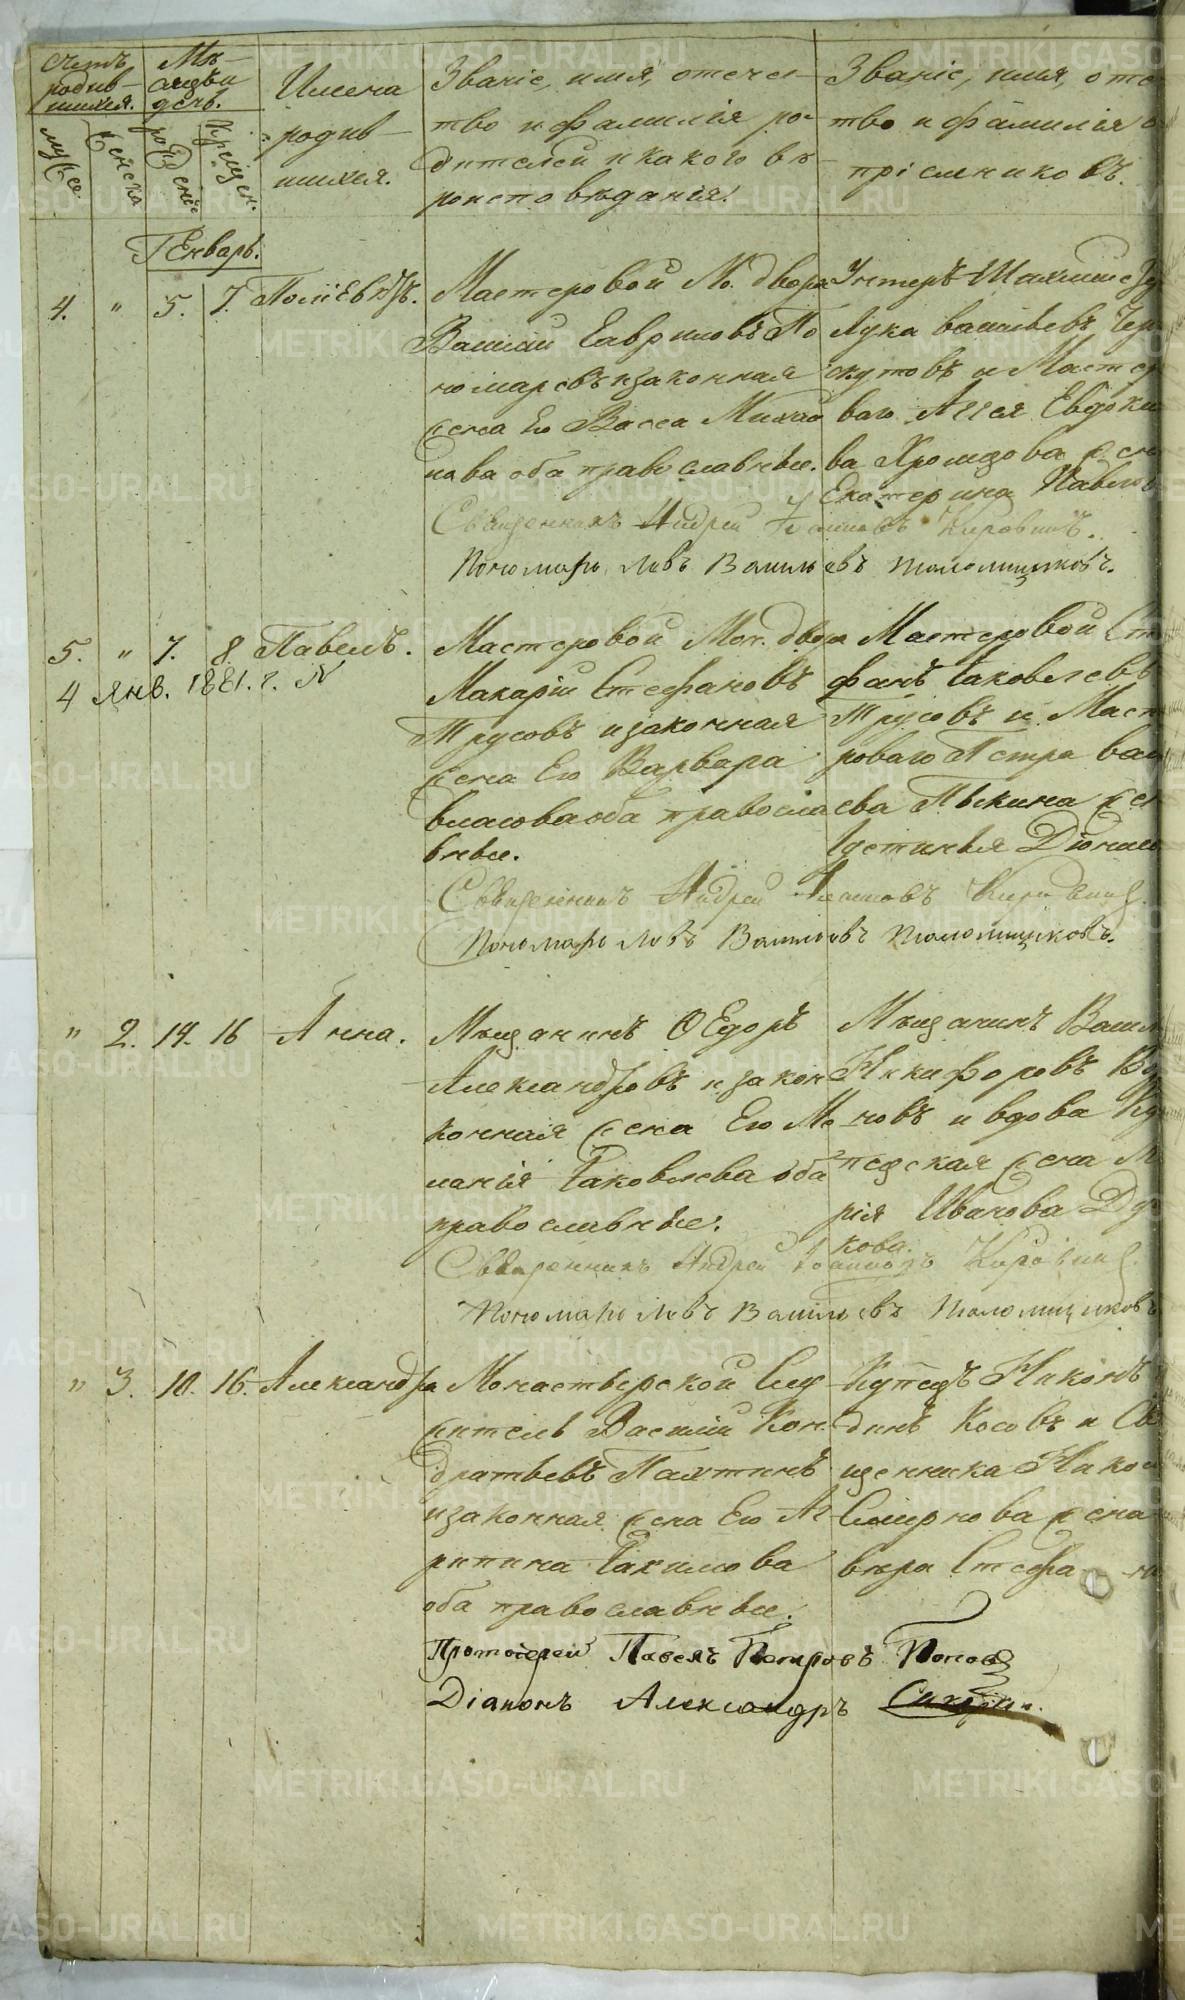 Счетъ родив-шихся.
Мѣ-сяцъ и день.
мужеска
женска
рожденіе
крещен.
Имена родив-шихся.
Званіе, имя, отече-
тво и фамилія ро-
дителей и какого вѣ-
роисповѣданія.
Званіе, имя, оте
тво и фамилія
пріемниковъ.
Генварь.
4. " 5. 7. Поліевктъ.
Мастеровой М. двора
Василій Гавриловъ По
номаревъ и законная
жена Его Васса Михай
лова оба православные.
Унтеръ Шахмисте
Лука Васильевъ Чер
скутовъ и Мастер
ваго Евдоки
ва Хромцова жен
Екатерина Павлов
Священникъ Андрей Іоанновъ Кировскій.
Пономарь Левъ Васильевъ Толомщиковъ.
5. " 7. 8. Павелъ.
4 Янв. 1881. г. N
Мастеровой Мон. двора
Макарій Стефановъ
Трусовъ и законная
жена Его Варвара
Власова оба правосла
вные.
Мастеровой Сте
фанъ Іаковлевъ
Трусовъ и Масте
роваго Петра Вас
ева Пькина жен
Іустинья Діонис
Священникъ Андрей Іоанновъ
Пономарь Левъ Васильевъ Толомщиковъ.
" 2. 14. 16 Анна.
Мѣщанинъ Ѳедоръ
Александровъ и закон
конная жена Его Ме
ланія Іаковлева оба
православные.
Мѣщанинъ Васил
Никифоровъ
новъ и вдова Ку
педская жена М
рія Иванова Ду
кова.
Священникъ Андрей Іоанновъ
Пономарь Левъ Васильевъ Толомщиковъ
" 3. 10. 16. Александра
Монастырской Слу
житель Василій Кон
дратьевъ Пахтинъ
и законная жена Его Аг
рипина Іакимова
оба православные.
Купецъ Никонъ
динъ Косовъ и Свя
щенника Никол
Смирнова жена
Вѣра Стефа на
Протоіерей Павелъ Петровъ Поповъ
Діаконъ Александръ